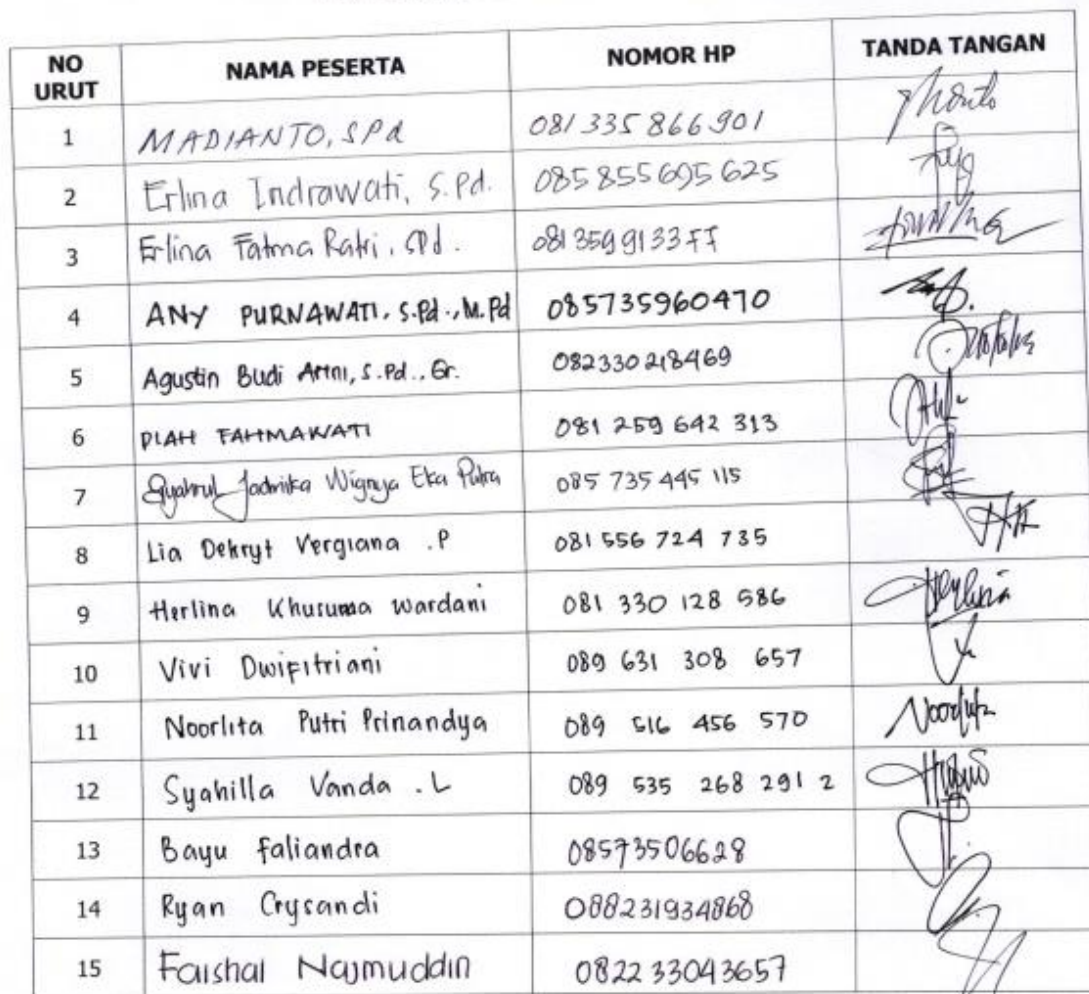 NO URUT NAMA PESERTA NOMOR HP TANDA TANGAN
1 MADIANTO, SPd 081 335 866 901
2 Erlina Indrawati, S.Pd. 085 855 695 625
3 Erlina Fatma Ratri, SPd. 081359913377
4 ANY PURNAWATI, S.Pd., M.Pd 085735960470
5 Agustin Budi Artni, S.Pd., Gr. 082330218469
6 DIAH FAHMAWATI 081 259 642 313
7 Syahrul Jadmika Wignya Eka Putra 085 735 445 115
8 Lia Dekryt Vergiana .P 081 556 724 735
9 Herlina Khusuma Wardani 081 330 128 586
10 Vivi Dwifitriani 089 631 308 657
11 Noorlita Putri Prinandya 089 516 456 570 Noorlita
12 Syahilla Vanda .L 089 535 268 291 2
13 Bayu Faliandra 08573506628
14 Ryan Crysandi 088231934868
15 Faishal Najmuddin 0822 33043657